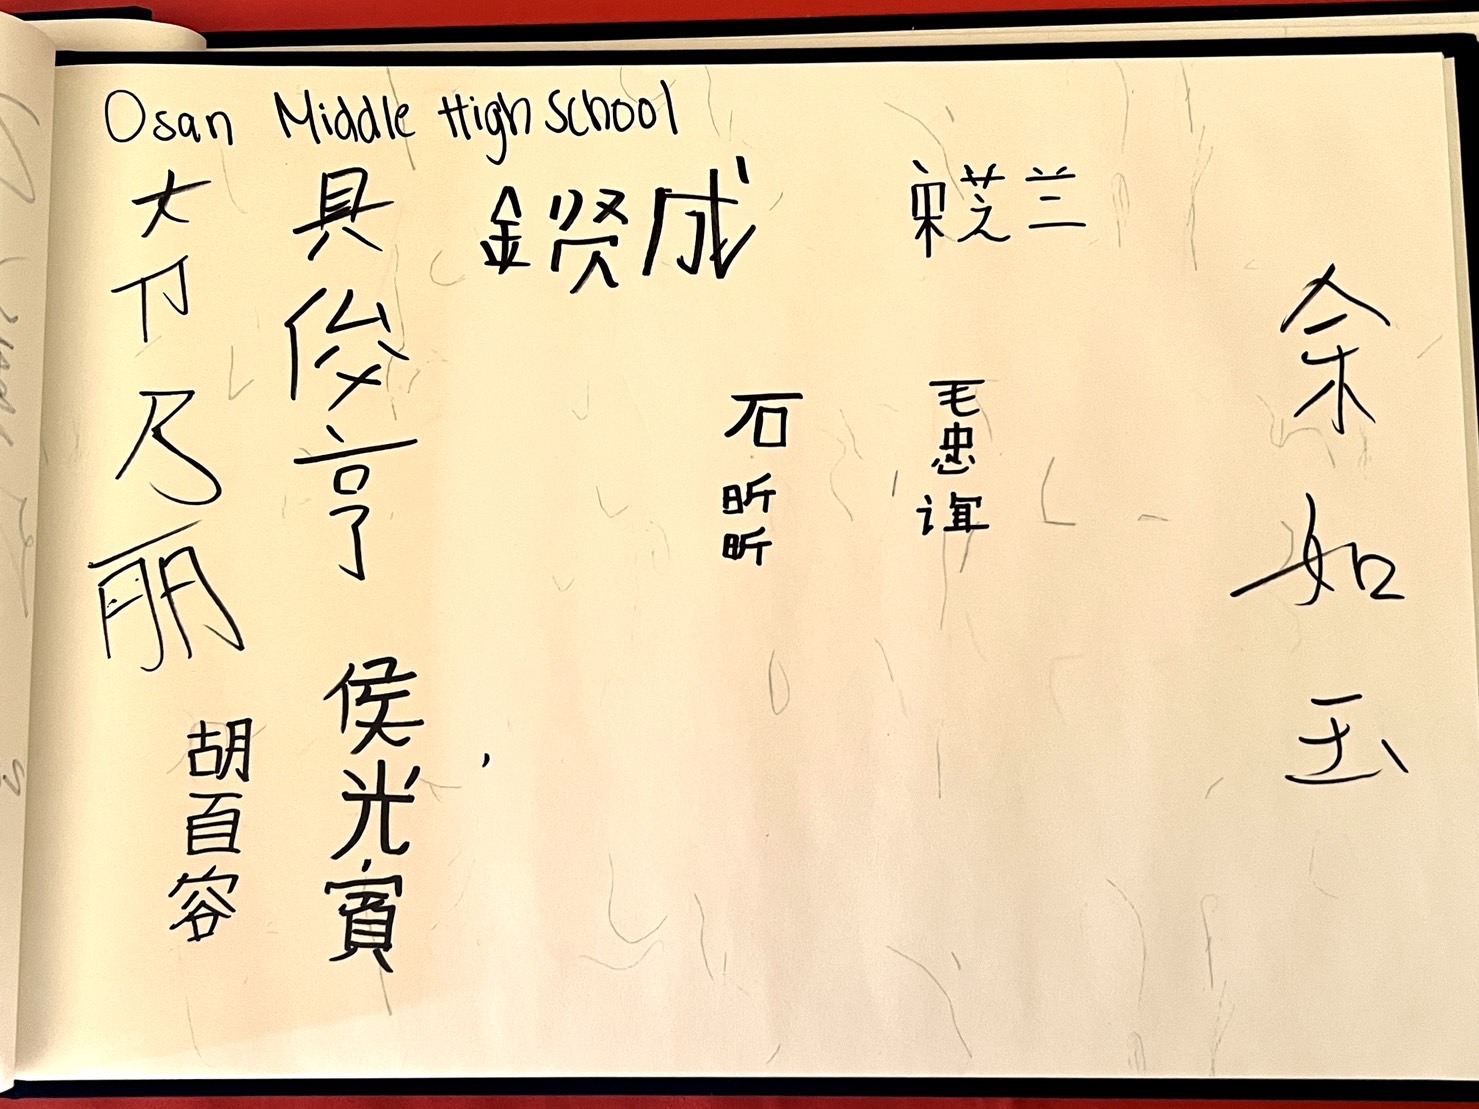 Osan Middle High School
大卫乃丽
具俊亨
金贤成
宋芝兰
石昕昕
毛忠谊
余如玉
胡百容
侯光賓